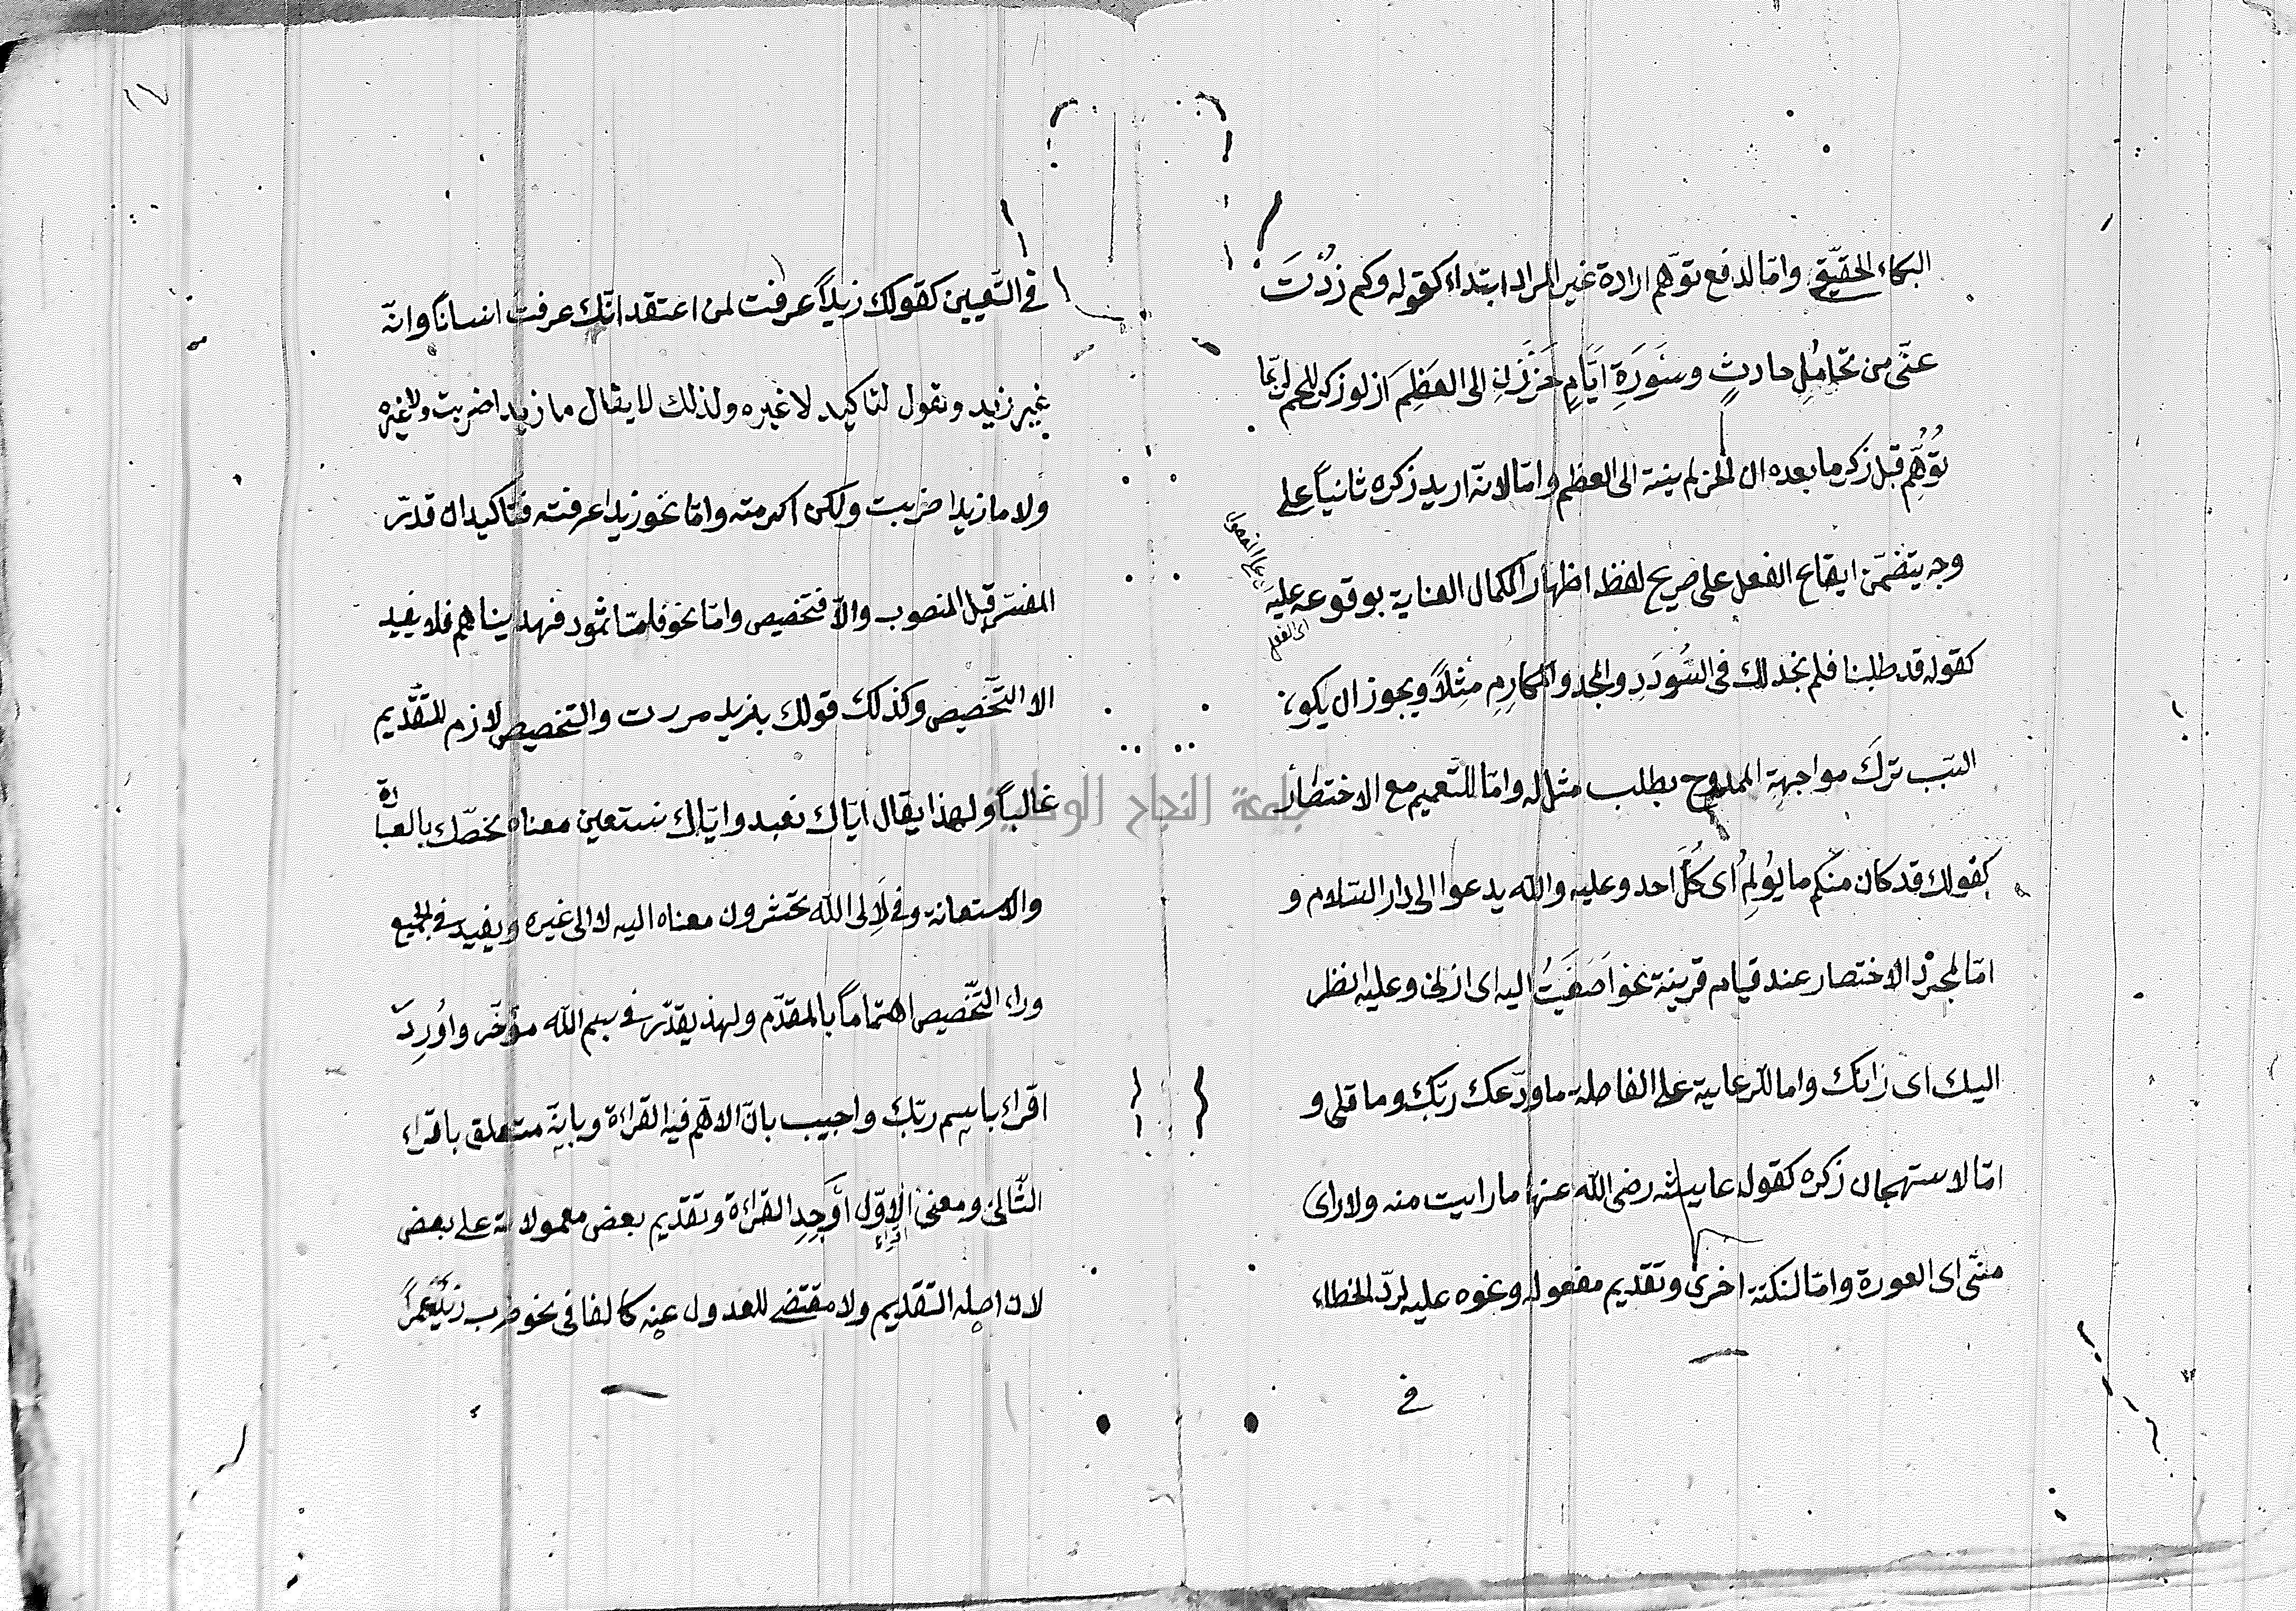 البكاء الحقيقي واما لدفع توهّم ارادة غير المراد ابتداء كقوله وكم ذُدْتَ
عنّى من تحَامُلِ حادثٍ وسَوَرَةِ ايّامٍ حَزَزْنَ الى العَظِمَ اذ لو ذكر اللحم لربّما
تُوُهِّم قبل ذكر ما بعده ان الحز لم ينته الى العظم وامّا لانّه اريد ذكره ثانياً على
وجه يتضمّن ايقاع الفعل على صريح لفظه اظهاراً لكمال العناية بوقوعه عليه
على المفعول
اى الفعل
كقوله قد طلبنا فلم نجد لك فى السُّودَدِ والمجد والمكارِمِ مِثْلاً ويجوز ان يكون
السّبب ترَكَ مواجهة الممدوح بطلب مثل له وامّا للتّعميم مع الاختصار
كقولك قد كان منكم ما يُؤلِمُ اى كُلَّ احد وعليه والله يدعوا الى دار السّلام و
امّا لمجرّد الاختصار عند قيام قرينة نحو اَصغَيتُ اليه اى اذنى وعليه انظر
اليك اى ذاتك واما للرّعاية على الفاصلة ما ودّعك ربّك وما قلى و
امّا لاستهجان ذكره كقول عايشة رضى الله عنها ما رايت منه ولا راى
منّى اى العورة وامّا لنكتة اخرى وتقديم مفعوله ونحوه عليه لردّ الخطاء
فى
١٧
فى التّعيين كقولك زيداً عرفت لمن اعتقد انّك عرفت انساناً وانّه
غير زيد وتقول لتاكيد لا غيره ولذلك لا يقال ما زيدا ضربت ولا غيره
ولا ما زيدا ضربت ولكن اكرمته وامّا نحو زيدا عرفته فتاكيد ان قدّر
المفسّر قبل المنصوب والاّ فتخصيص وامّا نحو فامّا ثمود فهديناهم فلا يفيد
الا التّخصيص وكذلك قولك بزيد مررت والتخصيص لازم للتّقديم
غالباً ولهذا يقال ايّاك نعبد وايّاك نستعين معناه نخصّك بالعبادة
والاستعانة وفى لَاِلى الله تحشرون معناه اليه لا الى غيره ويفيد فى الجميع
وراء التّخصيص اهتماماً بالمقدّم ولهذا يقدّر فى بسم الله مؤخّر واُورِدَ
اقراء باسم ربّك واجيب بانّ الاهّم فيه القراءة وبانّه متعلق باقراء
الثّانى ومعنى الاوّل اَوْجِدِ القراءة وتقديم بعض معمولاته على بعض
اقراء
لان اصله التقديم ولا مقتضى للعدول عنه كالفاعل فى نحو ضرب زيد عمراً
جامعة النجاح الوطنية